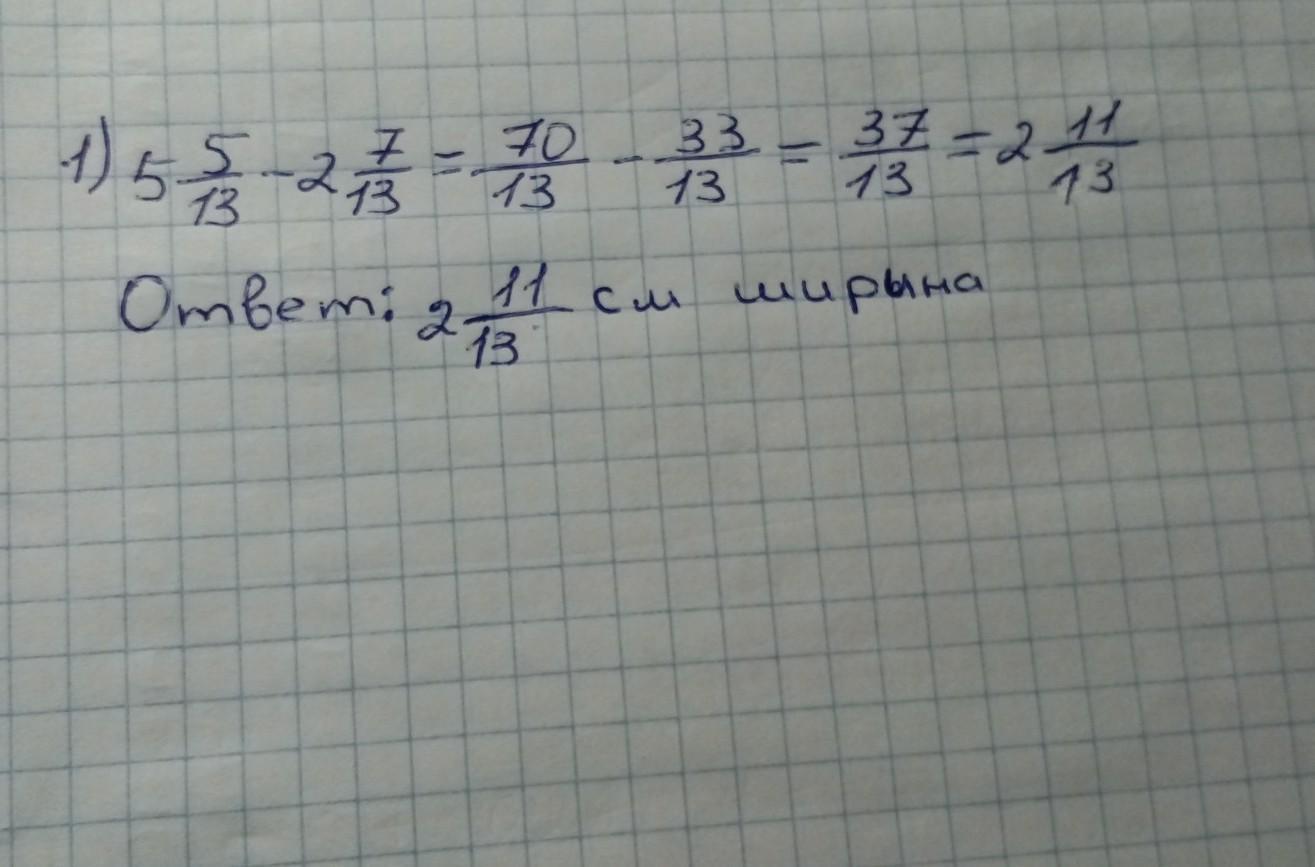 1) 5 5/13 - 2 7/13 = 70/13 - 33/13 = 37/13 = 2 11/13
Ответ: 2 11/13 см ширына